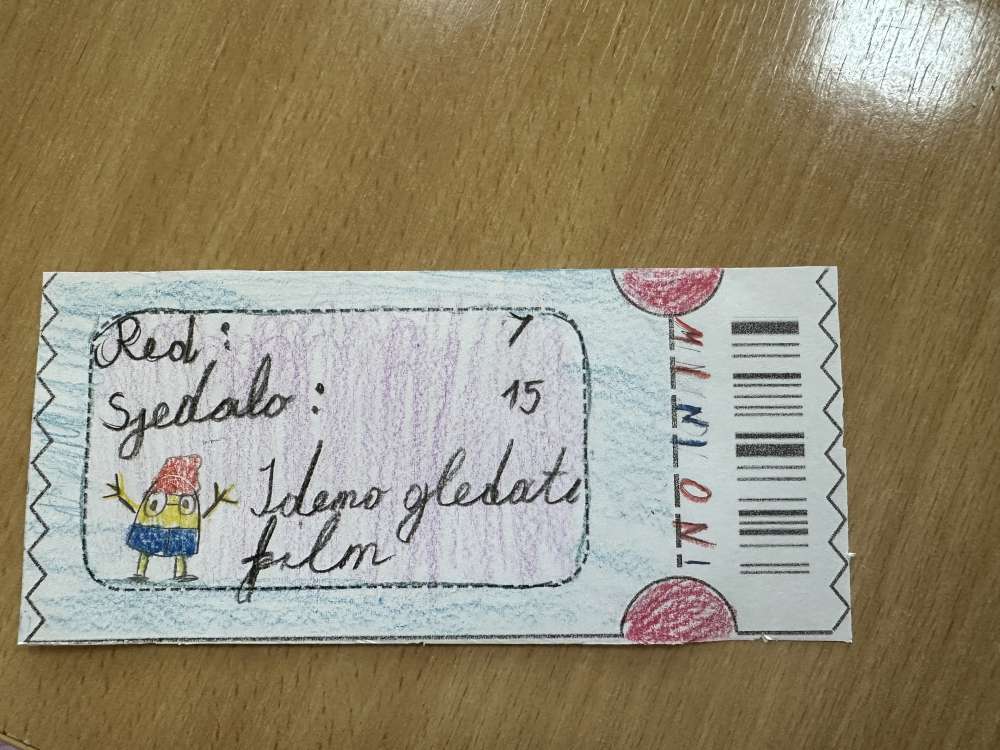 Red: 7
Sjedalo: 15
Idemo gledati
film
MINIONI